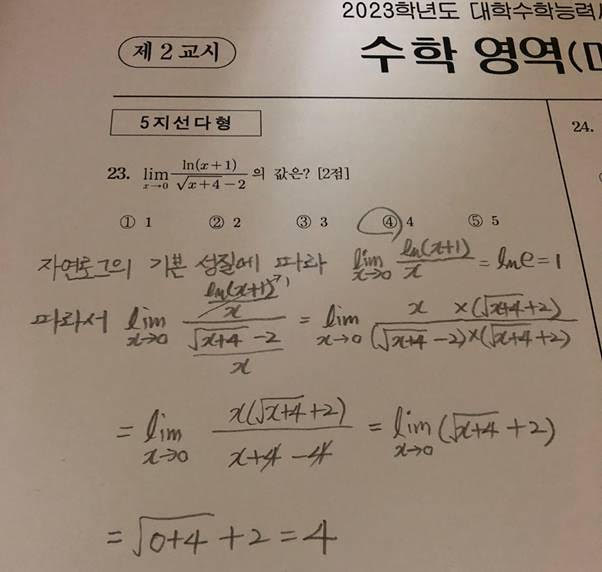 2023학년도 대학수학능력시
제 2 교시
수학 영역(미
5지선다형
24.
23. lim_{x→0} ln(x+1)/(√(x+4)−2) 의 값은? [2점]
① 1 ② 2 ③ 3 ④ 4 ⑤ 5
자연로그의 기본 성질에 따라 lim_{x→0} ln(x+1)/x = ln e = 1
따라서 lim_{x→0} (ln(x+1)/x →1)/((√(x+4) −2)/x) = lim_{x→0} (x ×(√(x+4)+2))/((√(x+4) −2)×(√(x+4) +2))
= lim_{x→0} x(√(x+4)+2)/(x+4−4) = lim_{x→0} (√(x+4) +2)
= √(0+4) +2 = 4